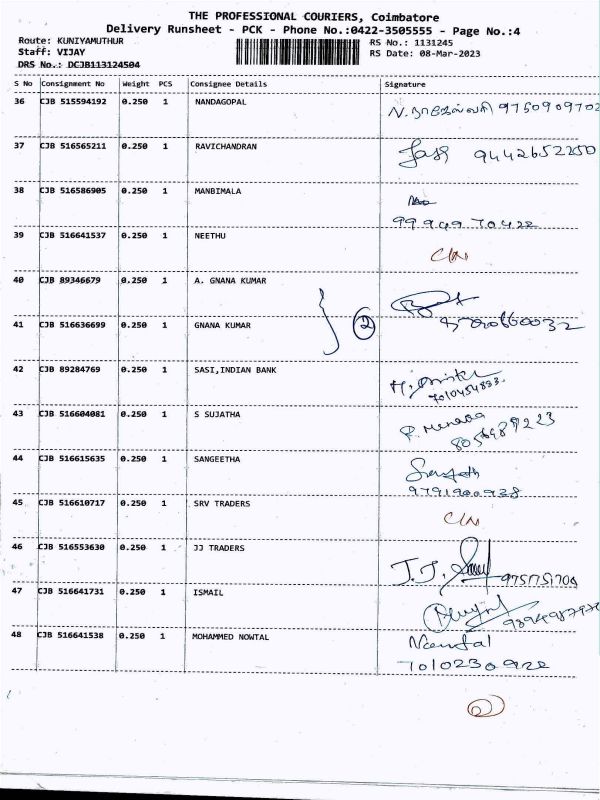 THE PROFESSIONAL COURIERS, Coimbatore
Delivery Runsheet - PCK - Phone No.:0422-3505555 - Page No.:4
Route: KUNIYAMUTHUR
RS No.: 1131245
Staff: VIJAY
RS Date: 08-Mar-2023
DRS No.: DCJB113124504
S No Consignment No Weight PCS Consignee Details Signature
36 CJB 515594192 0.250 1 NANDAGOPAL
37 CJB 516565211 0.250 1 RAVICHANDRAN 9442652250
38 CJB 516586905 0.250 1 MANBIMALA
39 CJB 516641537 0.250 1 NEETHU
40 CJB 89346679 0.250 1 A. GNANA KUMAR
41 CJB 516636699 0.250 1 GNANA KUMAR 2
42 CJB 89284769 0.250 1 SASI,INDIAN BANK
7010454833.
43 CJB 516604081 0.250 1 S SUJATHA
44 CJB 516615635 0.250 1 SANGEETHA
45 CJB 516610717 0.250 1 SRV TRADERS
46 CJB 516553630 0.250 1 JJ TRADERS J.J.
47 CJB 516641731 0.250 1 ISMAIL
48 CJB 516641538 0.250 1 MOHAMMED NOWTAL
7010230922
2